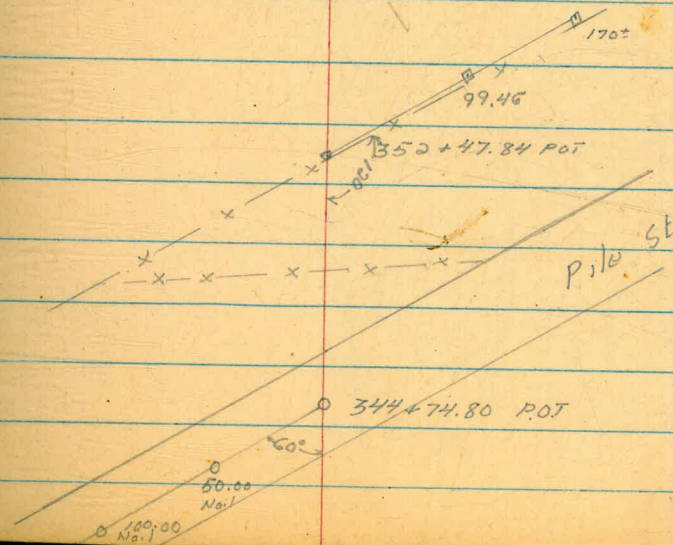 170±
99.46
352 + 47.84 POT
120
344 + 74.80 P.O.T
60°
50.00
Nail
100.00
Nail